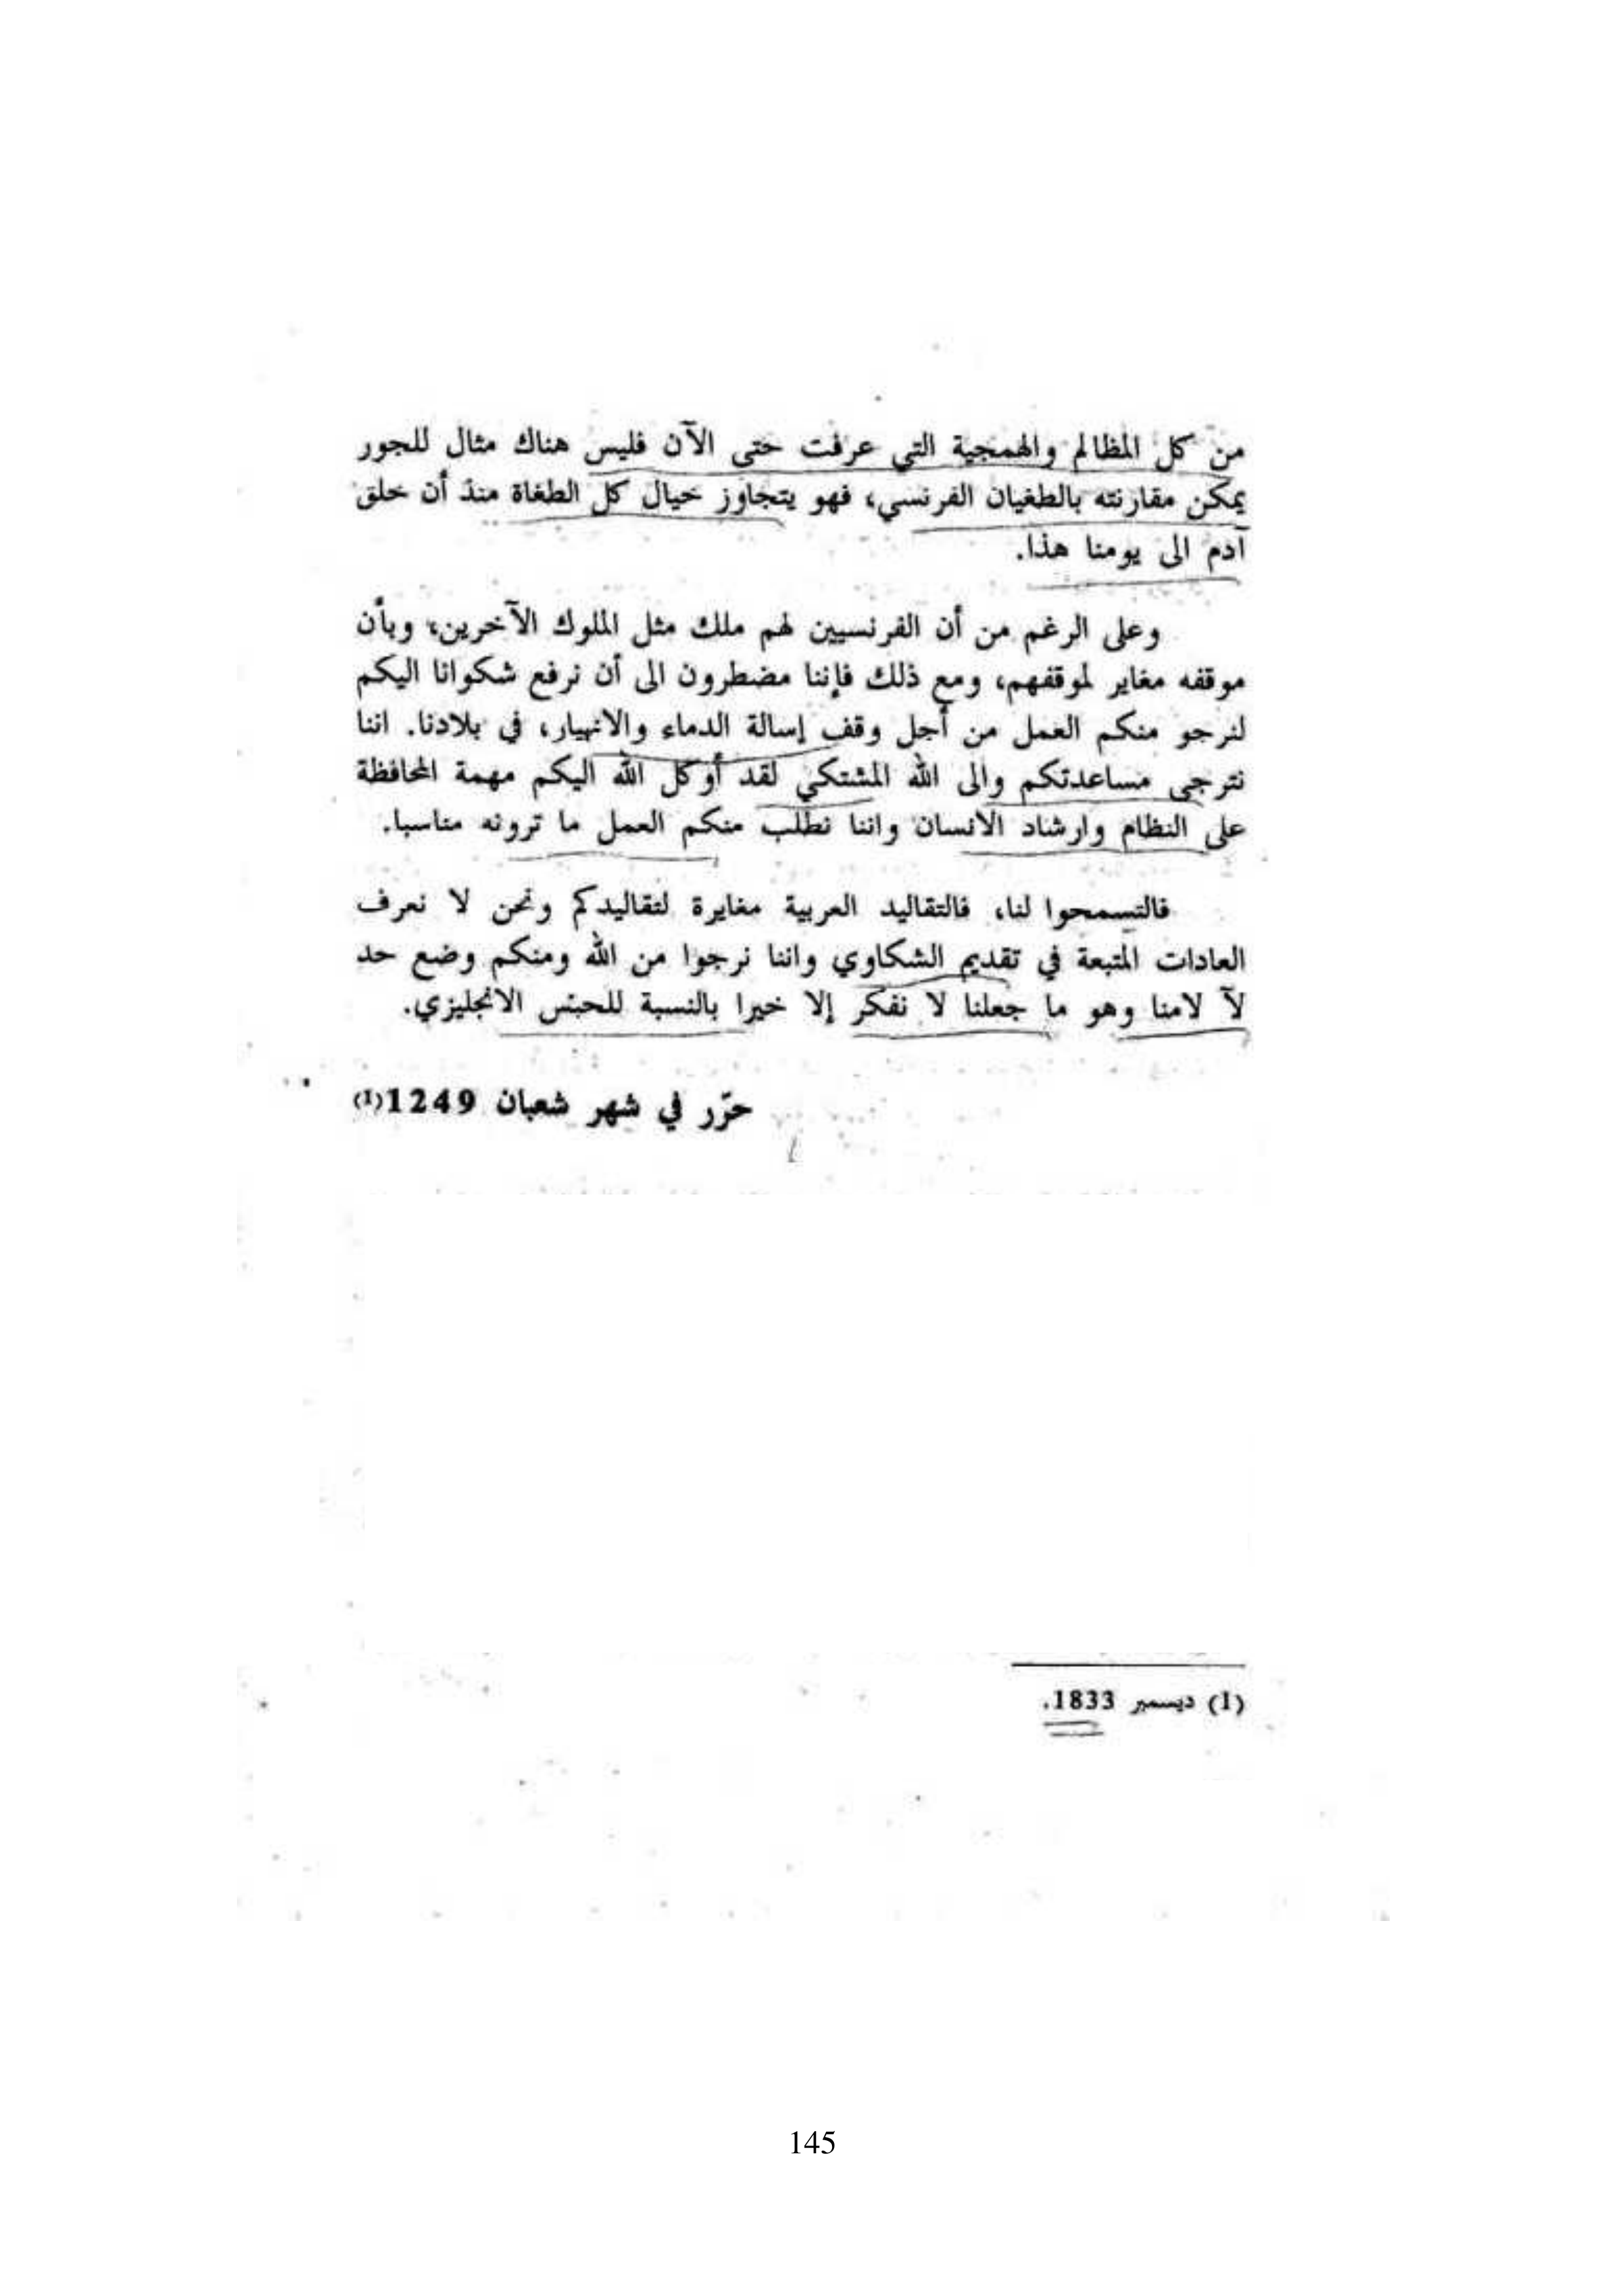 من كل المظالم والهمجية التي عرفت حتى الآن فليس هناك مثال للجور
يمكن مقارنته بالطغيان الفرنسي، فهو يتجاوز خيال كل الطغاة منذ أن خلق
آدم الى يومنا هذا.
وعلى الرغم من أن الفرنسيين لهم ملك مثل الملوك الآخرين، وبأن
موقفه مغاير لموقفهم، ومع ذلك فإننا مضطرون الى أن نرفع شكوانا اليكم
لنرجو منكم العمل من أجل وقف إسالة الدماء والانهيار، في بلادنا. اننا
نترجى مساعدتكم والى الله المشتكي لقد أوكل الله اليكم مهمة المحافظة
على النظام وارشاد الانسان واننا نطلب منكم العمل ما ترونه مناسبا.
فالتسمحوا لنا، فالتقاليد العربية مغايرة لتقاليدكم ونحن لا نعرف
العادات المتبعة في تقديم الشكاوي واننا نرجوا من الله ومنكم وضع حد
لآ لامنا وهو ما جعلنا لا نفكر إلا خيرا بالنسبة للحبنس الانجليزي.
حرّر في شهر شعبان 1249(1)
(1) ديسمبر 1833.
145